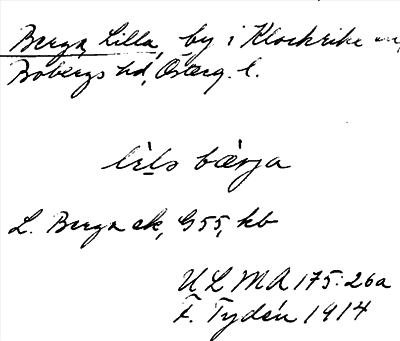 Berga, Lilla, by i Klockrike sn,
Bobergs hd, Österg. l.
lìls bærja
L. Berga ek, G55, kb
ULMA 175:26a
F. Tydén 1914